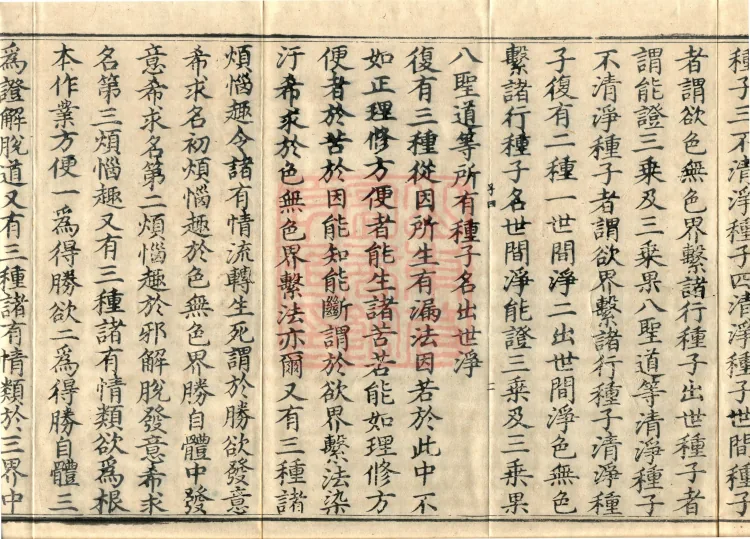 種子三不清淨種子四清淨種子世間種子
者謂欲色無色界繫諸行種子出世種子者
謂能證三乘及三乘果八聖道等清淨種子
不清淨種子者謂欲界繫諸行種子清淨種
子復有二種一世間淨二出世間淨色無色
繫諸行種子名世間淨能證三乘及三乘果
八聖道等所有種子名出世淨
復有三種從因所生有漏法因若於此中不
如正理修方便者能生諸苦若能如理修方
便者於苦於因能知能斷謂於欲界繫法染
汙希求於色無色界繫法亦爾又有三種諸
煩惱趣令諸有情流轉生死謂於勝欲發意
希求名初煩惱趣於色無色界勝自體中發
意希求名第二煩惱趣於邪解脫發意希求
名第三煩惱趣又有三種諸有情類欲為根
本作業方便一為得勝欲二為得勝自體三
為證解脫道又有三種諸有情類於三界中